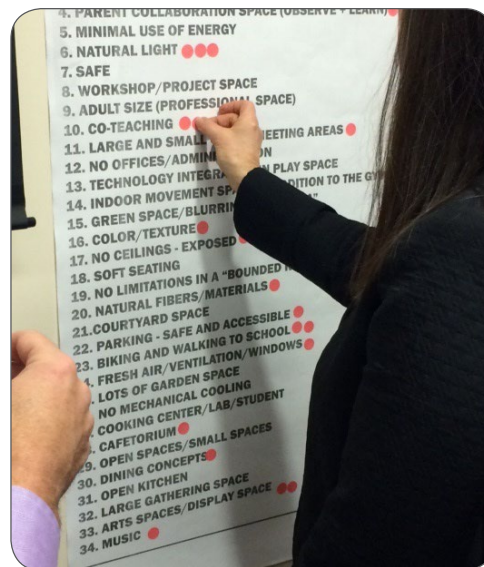 4. PARENT COLLABORATION SPACE (OBSERVE + LEARN)
5. MINIMAL USE OF ENERGY
6. NATURAL LIGHT
7. SAFE
8. WORKSHOP/PROJECT SPACE
9. ADULT SIZE (PROFESSIONAL SPACE)
10. CO-TEACHING
11. LARGE AND SMALL MEETING AREAS
12. NO OFFICES/
13. TECHNOLOGY PLAY SPACE
14. INDOOR MOVEMENT TO THE
15. GREEN SPACE/
16. COLOR/TEXTURE
17. NO CEILINGS - EXPOSED
18. SOFT SEATING
19. NO LIMITATIONS IN A "BOUNDED
20. NATURAL FIBERS/MATERIALS
21.COURTYARD SPACE
22. PARKING - SAFE AND ACCESSIBLE
23. BIKING AND WALKING TO SCHOOL
FRESH AIR/VENTILATION/WINDOWS
LOTS OF GARDEN SPACE
NO MECHANICAL COOLING
COOKING CENTER/LAB/STUDENT
CAFETORIUM
29. OPEN SPACES/SMALL SPACES
30. DINING CONCEPTS
31. OPEN KITCHEN
32. LARGE GATHERING SPACE
33. ARTS SPACES/DISPLAY SPACE
34. MUSIC